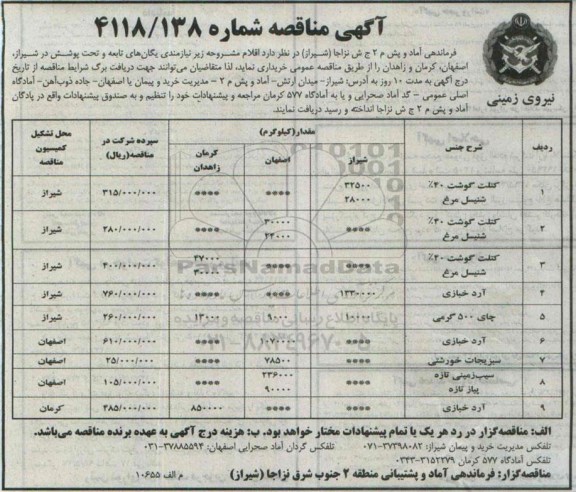 آگهی مناقصه شماره ۴۱۱۸/۱۳۸
نیروی زمینی
فرماندهی آماد و پش م ۲ ج ش نزاجا (شیراز) در نظر دارد اقلام مشروحه زیر نیازمندی یگان‌های تابعه و تحت پوشش در شیراز،
اصفهان، کرمان و زاهدان را از طریق مناقصه عمومی خریداری نماید، لذا متقاضیان می‌توانند جهت دریافت برگ شرایط مناقصه از تاریخ
درج آگهی به مدت ۱۰ روز به آدرس: شیراز- میدان ارتش- آماد و پش م ۲ – مدیریت خرید و پیمان یا اصفهان- جاده ذوب‌آهن- آمادگاه
اصلی عمومی – گد آماد صحرایی و یا به آمادگاه ۵۷۷ کرمان مراجعه و پیشنهادات خود را تنظیم و به صندوق پیشنهادات واقع در پادگان
آماد و پش م ۲ ج ش نزاجا انداخته و رسید دریافت نمایند.
ردیف شرح جنس مقدار(کیلوگرم) سپرده شرکت در مناقصه(ریال) محل تشکیل کمیسیون مناقصه
شیراز اصفهان کرمان زاهدان
۱ کتلت گوشت ۴۰٪ ۳۲۵۰۰ **** **** ۳۱۵/۰۰۰/۰۰۰ شیراز
شنیسل مرغ ۲۸۰۰۰
۲ کتلت گوشت ۴۰٪ **** ۳۰۰۰۰ **** ۲۸۰/۰۰۰/۰۰۰ شیراز
شنیسل مرغ ۲۴۰۰۰
۳ کتلت گوشت ۴۰٪ **** **** ۴۷۰۰۰ ۴۰۰/۰۰۰/۰۰۰ شیراز
شنیسل مرغ
۴ آرد خبازی ۱۳۳۰۰۰۰ **** **** ۷۶۰/۰۰۰/۰۰۰ شیراز
۵ چای ۵۰۰ گرمی ۱۰۰۰۰ ۹۰۰۰ ۱۳۰۰۰ ۲۶۰/۰۰۰/۰۰۰ شیراز
۶ آرد خبازی **** ۱۰۷۰۰۰۰ **** ۶۱۰/۰۰۰/۰۰۰ اصفهان
۷ سبزیجات خورشتی **** ۷۸۵۰۰ **** ۲۵/۰۰۰/۰۰۰ اصفهان
۸ سیب‌زمینی تازه **** ۲۳۶۰۰۰ **** ۱۰۵/۰۰۰/۰۰۰ اصفهان
پیاز تازه ۹۰۰۰۰
۹ آرد خبازی **** **** ۸۵۰۰۰۰ ۴۸۵/۰۰۰/۰۰۰ کرمان
الف: مناقصه‌گزار در رد هر یک یا تمام پیشنهادات مختار خواهد بود. ب: هزینه درج آگهی به عهده برنده مناقصه می‌باشد.
تلفکس مدیریت خرید و پیمان شیراز: ۳۷۳۹۸۰۸۲-۰۷۱ تلفکس گردان آماد صحرایی اصفهان: ۳۷۸۸۵۵۹۲-۰۳۱
تلفکس آمادگاه ۵۷۷ کرمان ۳۱۵۲۲۷۹-۰۳۴۳
مناقصه‌گزار: فرماندهی آماد و پشتیبانی منطقه ۲ جنوب شرق نزاجا (شیراز) م الف ۱۰۶۵۵
ParsNamadData